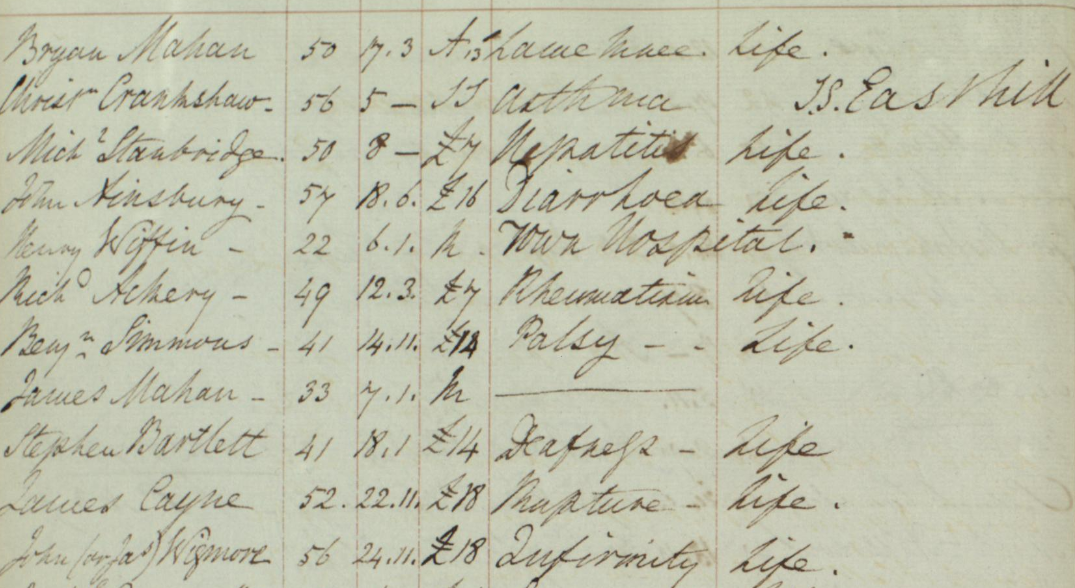 Bryan Mahan 50 17.3 A.13 Lame Knee. Life.
Christr Crankshaw - 56 5 - Asthma T.S. Easthill
Michl Stanbridge. 50 8 - £7 Hepatitis Life.
John Ainsbury - 57 18.6. £16 Diarrhoea Life.
Henry Wiffin - 22 6.1. M. Town Hospital.
Richd Ackery - 49 12.3. £7 Rheumatism Life.
Benjn Simmons - 41 14.11. £12 Palsy - - Life.
James Mahan - 33 7.1. M
Stephen Bartlett 41 18.1 £14 Deafness - Life
James Cayne 52. 22.11. £18 Rupture - Life.
John (or Jas) Wigmore 56 24.11. £18 Infirmity Life.